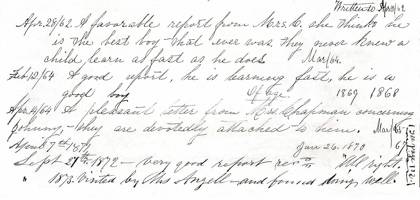 Written to Apr 30/62
Apr. 28/62 A favorable report from Mrs. C. she thinks he
is the best boy that ever was. They never knew a
child learn as fast as he does. Mar/64.
Feb 12/64 A good report, he is learning fast, he is a
good boy Of age. 1869 1868
Apr. 4/64 A pleasant letter from Mrs Chapman concerning
Johnny,- they are devotedly attached to him. Mar/65
April 7th 1879 Jan 26. 1870 67
Sept. 27th 1872 - Very good report rec'd "All right.
" 1873 Visited by Mrs Angell - and found doing well